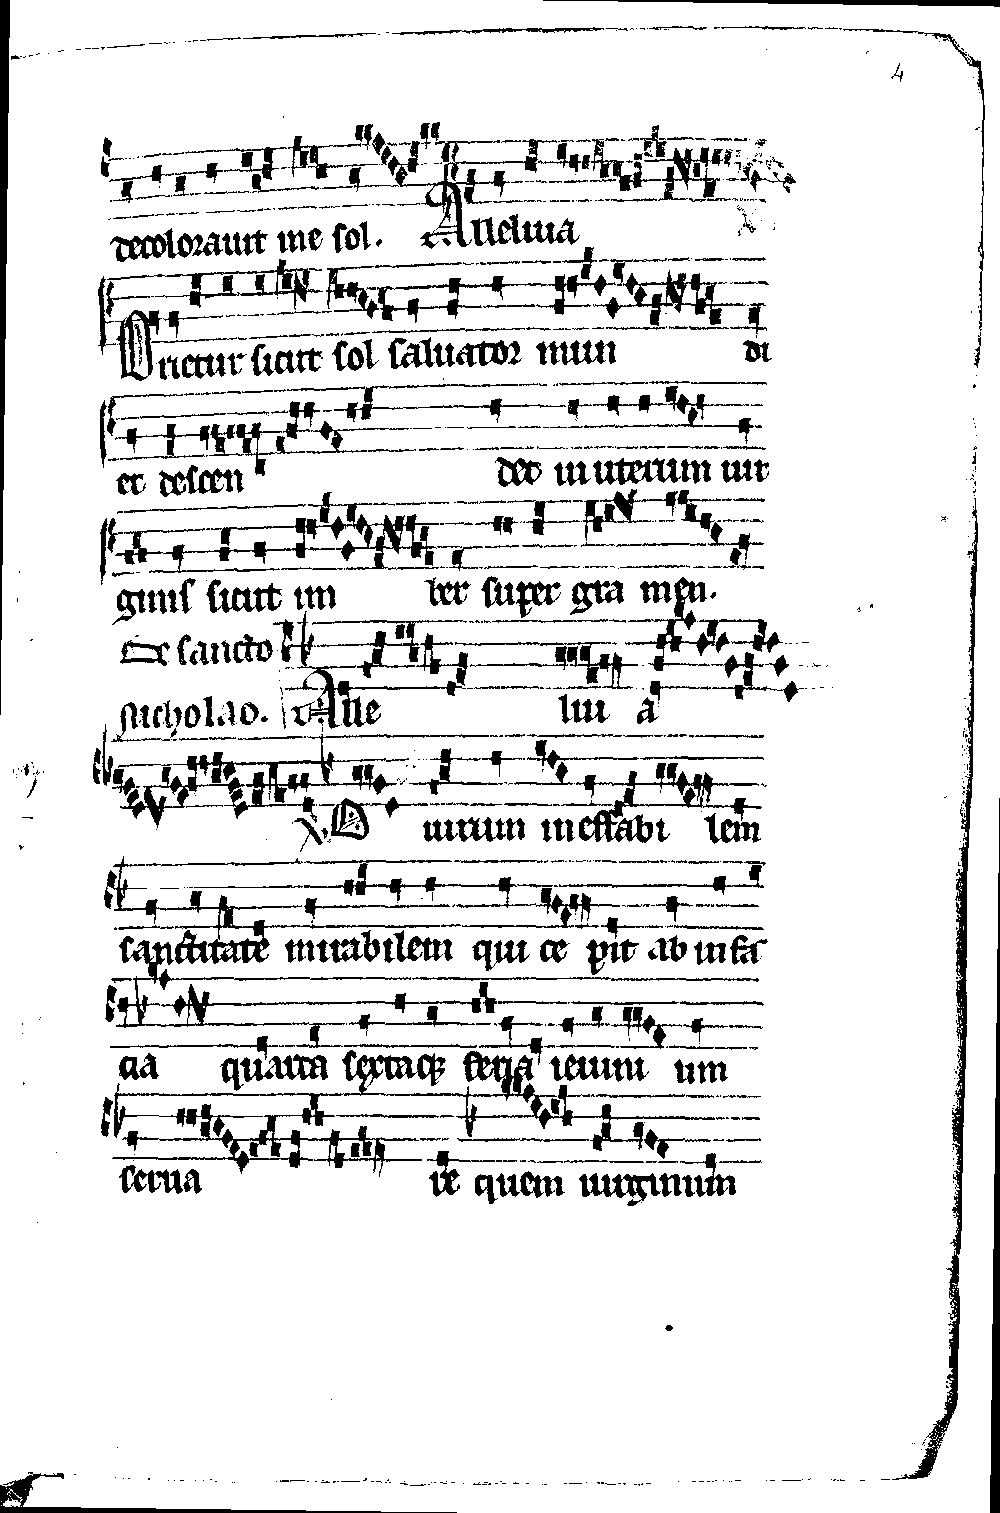 4
decolorauit me sol. Alleluia
Orietur sicut sol saluator mun di
et descen det in uterum uir
ginis sicut im ber super gra men.
De sancto
nicholao. Alle lui a
℣. O uirum ineffabi lem
sanctitate mirabilem qui ce pit ab infã
cia quarta sextaqꝫ feria ieiuni um
serua re quem uirginum